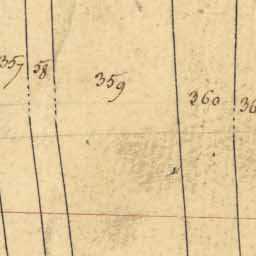 357 58 359 360 36